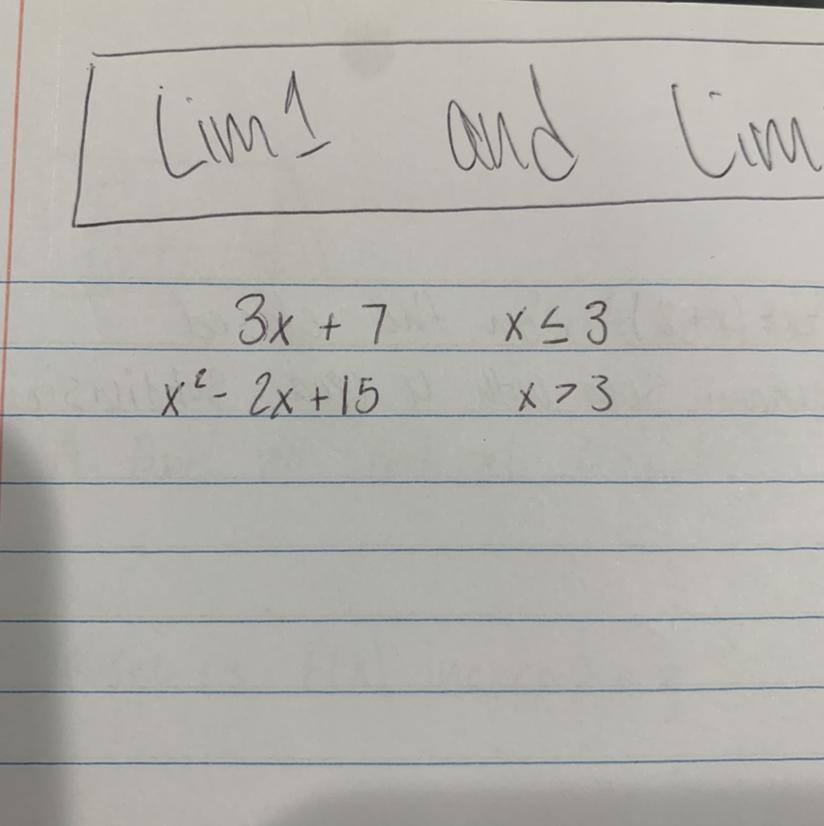 Lim 1 and Lim
3x + 7 x ≤ 3
x² - 2x + 15 x > 3